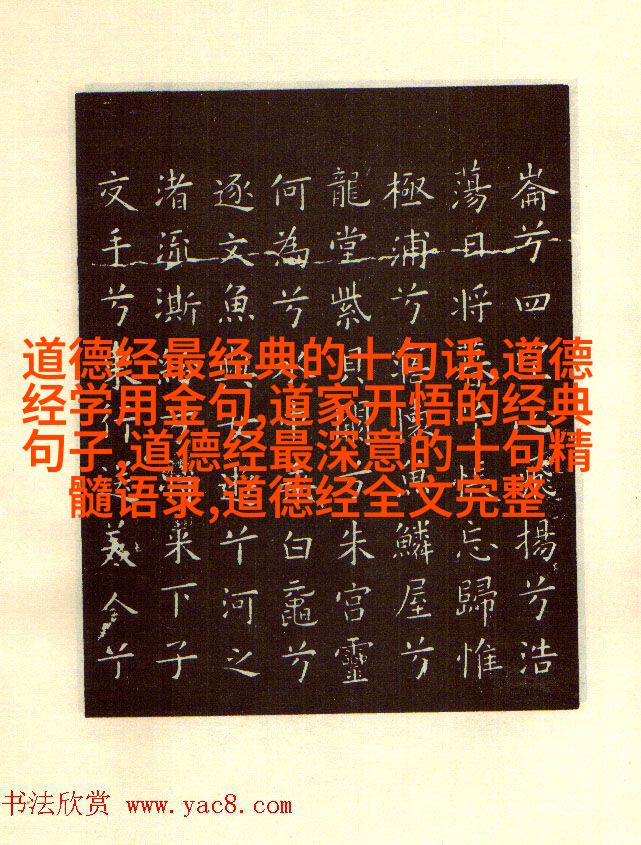 道德经最经典的十句话,道德
经学用金句,道家开悟的经典
句子,道德经最深意的十句精
髓语录,道德经全文完整
崙兮四揚兮浩
蕩日將忘歸惟
極浦兮懷魚鱗屋兮
龍堂紫貝闕兮朱宮靈
何為兮白黿兮
逐文魚與女遊兮河之
渚流澌來下子
交手兮東行送美人兮
书法欣赏 www.yac8.com